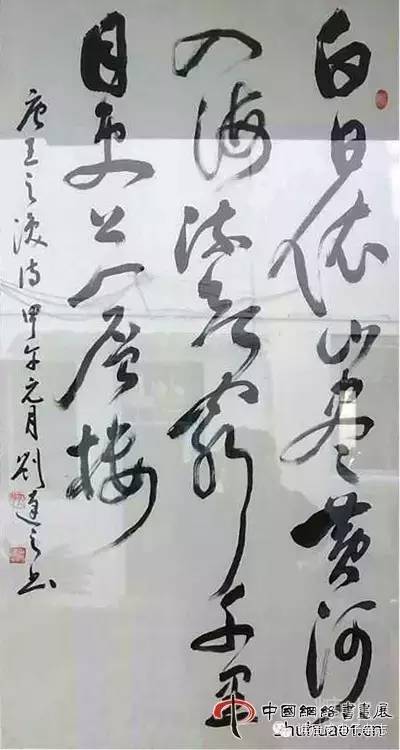 白日依山尽黄河
入海流欲穷千里
目更上一层楼
唐王之涣诗甲午元月劉之书
中國網絡書畫展